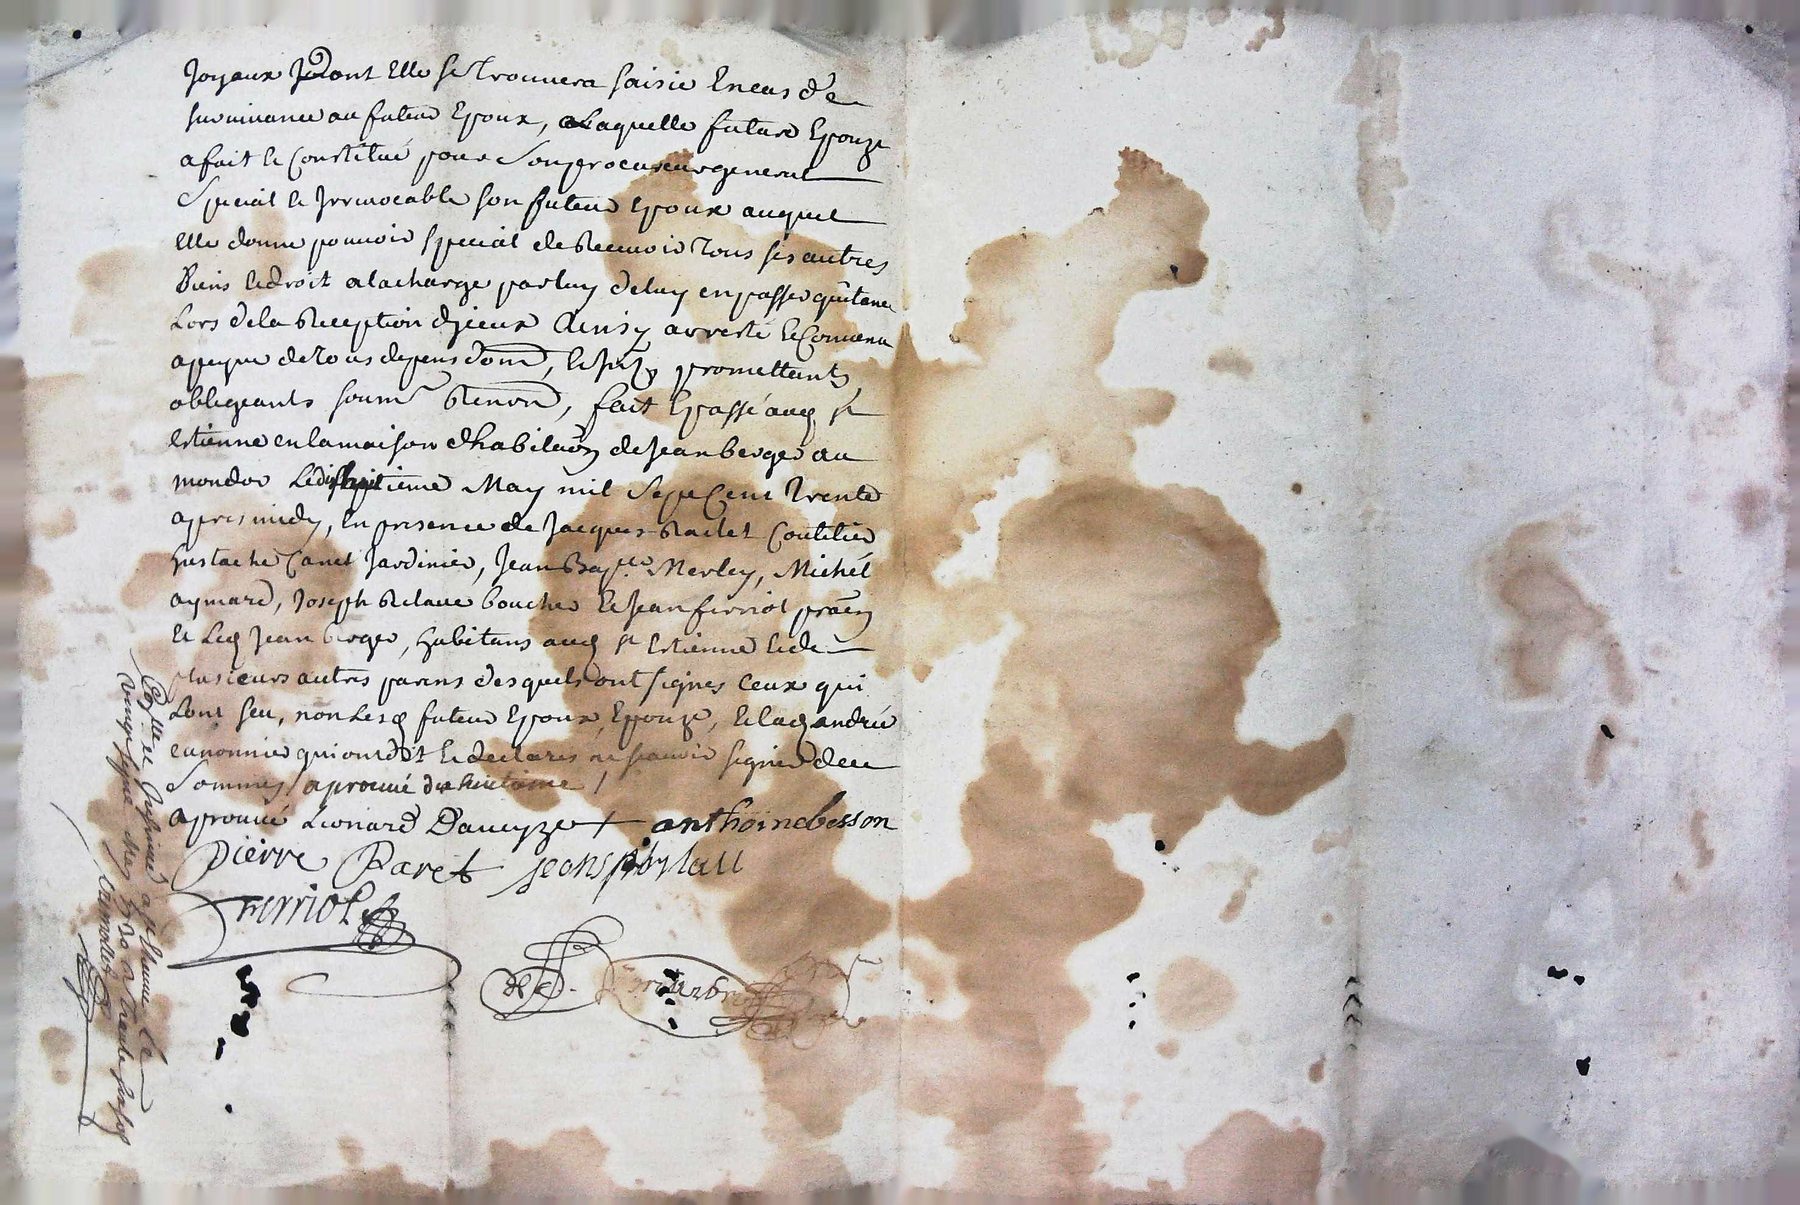 Joyaux Jdont Elle se trouvera saisie En cas de
survivance au futeur Epoux, a Laquelle future Epouze
a fait Et Constitué pour Son procureur general
Special Et Jrrevocable son futeur Epoux auquel
elle donne pouvoir special de Recevoir tous ses autres
Biens Et droit a la charge par luy de luy en passer quitance
Lors de la Reception d'jceux Ainsy arresté Et Convenu
a peyne de tous depens dom, Et promettants
obligeants soum Renon, fait Et passé aud St
Estienne en la maison d'habitaon de Jean berger au
mondor Le dixhuitieme May mil Sept Cent trente
apres midy, En presence de Jacques Coutelier
Eustache Canet Jardinier, Jean Bapte Merley, Michel
aymard, Joseph boucher Et Jean ferriol pratn
Et Led Jean berger, habitans aud St Estienne Et de
plusieurs autres parens desquels ont signes Ceux qui
Lont seu, non Lesd futeur Epoux, Epouze, Et lad andrée
qui ont dit Et declares ne sçavoir signer de ce
Sommes / aprouvé dixhuitieme /
aprouvé Leonard Daveyze anthoine besson
Pierre Paret
Ferriol
Collé et a St Etienne le
vingt may 1730 trente six sols